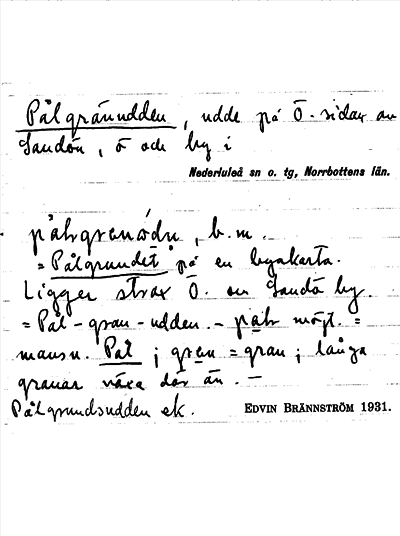 Pålgränudden, udde på Ö-sidan av
Sandön, ö och by i
Nederluleå sn o. tg, Norrbottens län.
b.m.
= Pålgrundet på en byakarta.
Ligger strax Ö. om Sandö by.
= Pål-gran-udden. - möjl. =
mansn. Pål; gren = gran; långa
granar växa där än. —
Pålgrundsudden ek.
EDVIN BRÄNNSTRÖM 1931.